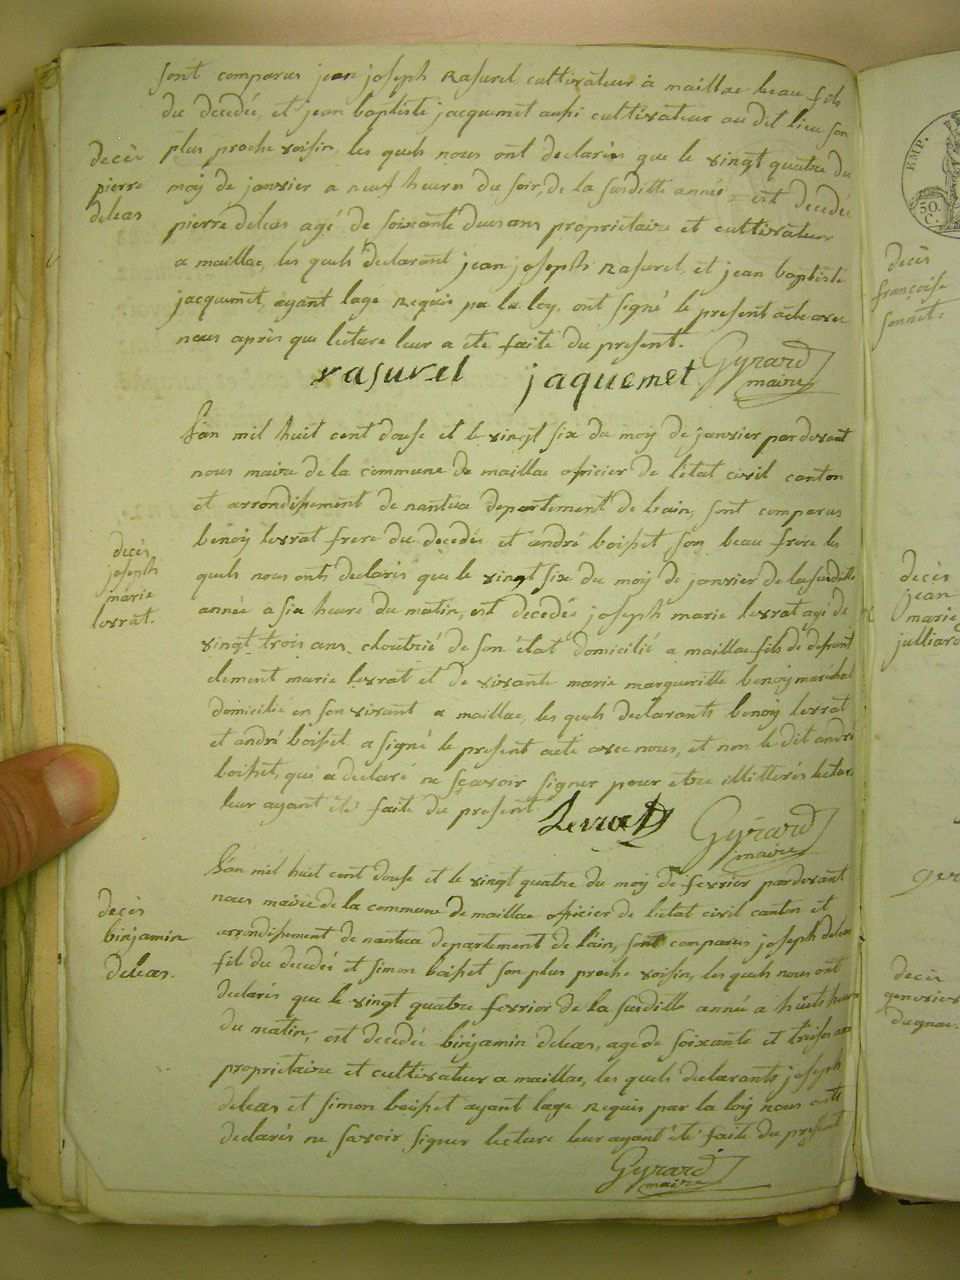 sont comparus jean joseph Rasurel cultivateur à maillac beau fils
du decedé, et jean baptiste jacquemet aussi cultivateur au dit lieu son
plus proche voisin, les quels nous ont declarés que le vingt quatre du
moy de janvier a neuf heures du soir, de la surditte année = est decedée
pierre deléas agé de soixante deus ans proprietaire et cultivateur
a maillac, les quels declarant jean joseph Rasurel, et jean baptiste
jacquemet, ayant lage Requis pa la loy, ont signé le present acte avec
nous après que lecture leur a été faite du present.
decès
pierre
deleas
rasurel jaquemet Gyrard
maire
L'an mil huit cent douse et le vingt six du moy de janvier pardevant
nous maire de la commune de maillac officier de l'état civil canton
et arrondissement de nantua departement de lain, sont comparus
benoy levrat frere du decedés et andré boisset son beau frere les
quels nous onts declarés que le vingt six du moy de janvier de la surditte
année a six heure du matin, est decedée joseph marie levrat agé de
vingt trois ans, cloutrié de son état domicilié a maillac fils de defeunt
clement marie levrat et de vivante marie margueritte benoy maréchal
domicilie en son vivant a maillac, les quels declarants benoy levrat
et andré boisset a signé le present acte avec nous, et non le dit andré
boisset, qui a declaré ne sçavoir signer pour etre illitterés lecture
leur ayant été faite du present
decès
joseph
marie
levrat.
Levrat Gyrard
maire
L'an mil huit cent douse et le vingt quatre du moy de fevrier pardevant
nous maire de la commune de maillac officier de l'état civil canton et
arrondissement de nantua departement de l'ain, sont comparus joseph deleas
fils du decedé et simon boisset son plus proche voisin, les quels nous ont
declarés que le vingt quatre fevrier de la surditte année a huits heures
du matin, est decedée binjamin deleas, age de soixante et treise ans
proprietaire et cultivateur a maillac, les quels declarants joseph
deleas et simon boisset ayant lage Requis par la loy nous onts
declarés ne savoir signer lecture leur ayant été faite du present
decès
binjamin
deleas.
Gyrard
maire
EMP.
50
C.
decès
françoise
sonnet.
decès
jean
marie
julliard
decès
genevieve